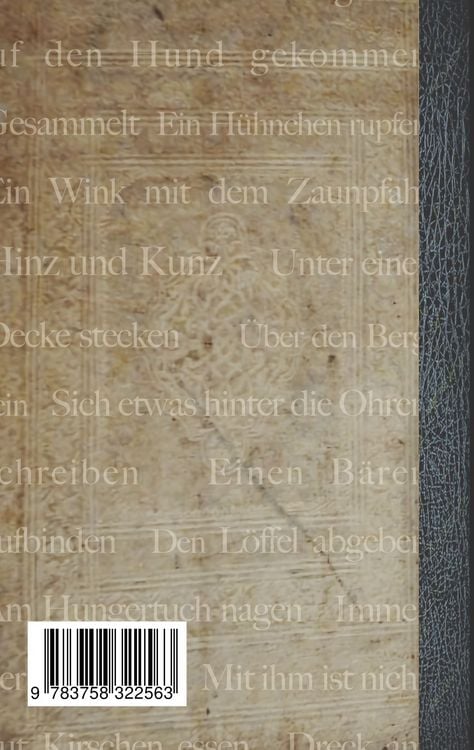 uf den Hund gekommen
Gesammelt Ein Hühnchen rupfen
Ein Wink mit dem Zaunpfahl
Hinz und Kunz Unter einer
Decke stecken Über den Berg
ein Sich etwas hinter die Ohren
schreiben Einen Bären
aufbinden Den Löffel abgeben
Am Hungertuch nagen Imme
er Mit ihm ist nich
ut Kirschen essen Dreck am
9 783758 322563